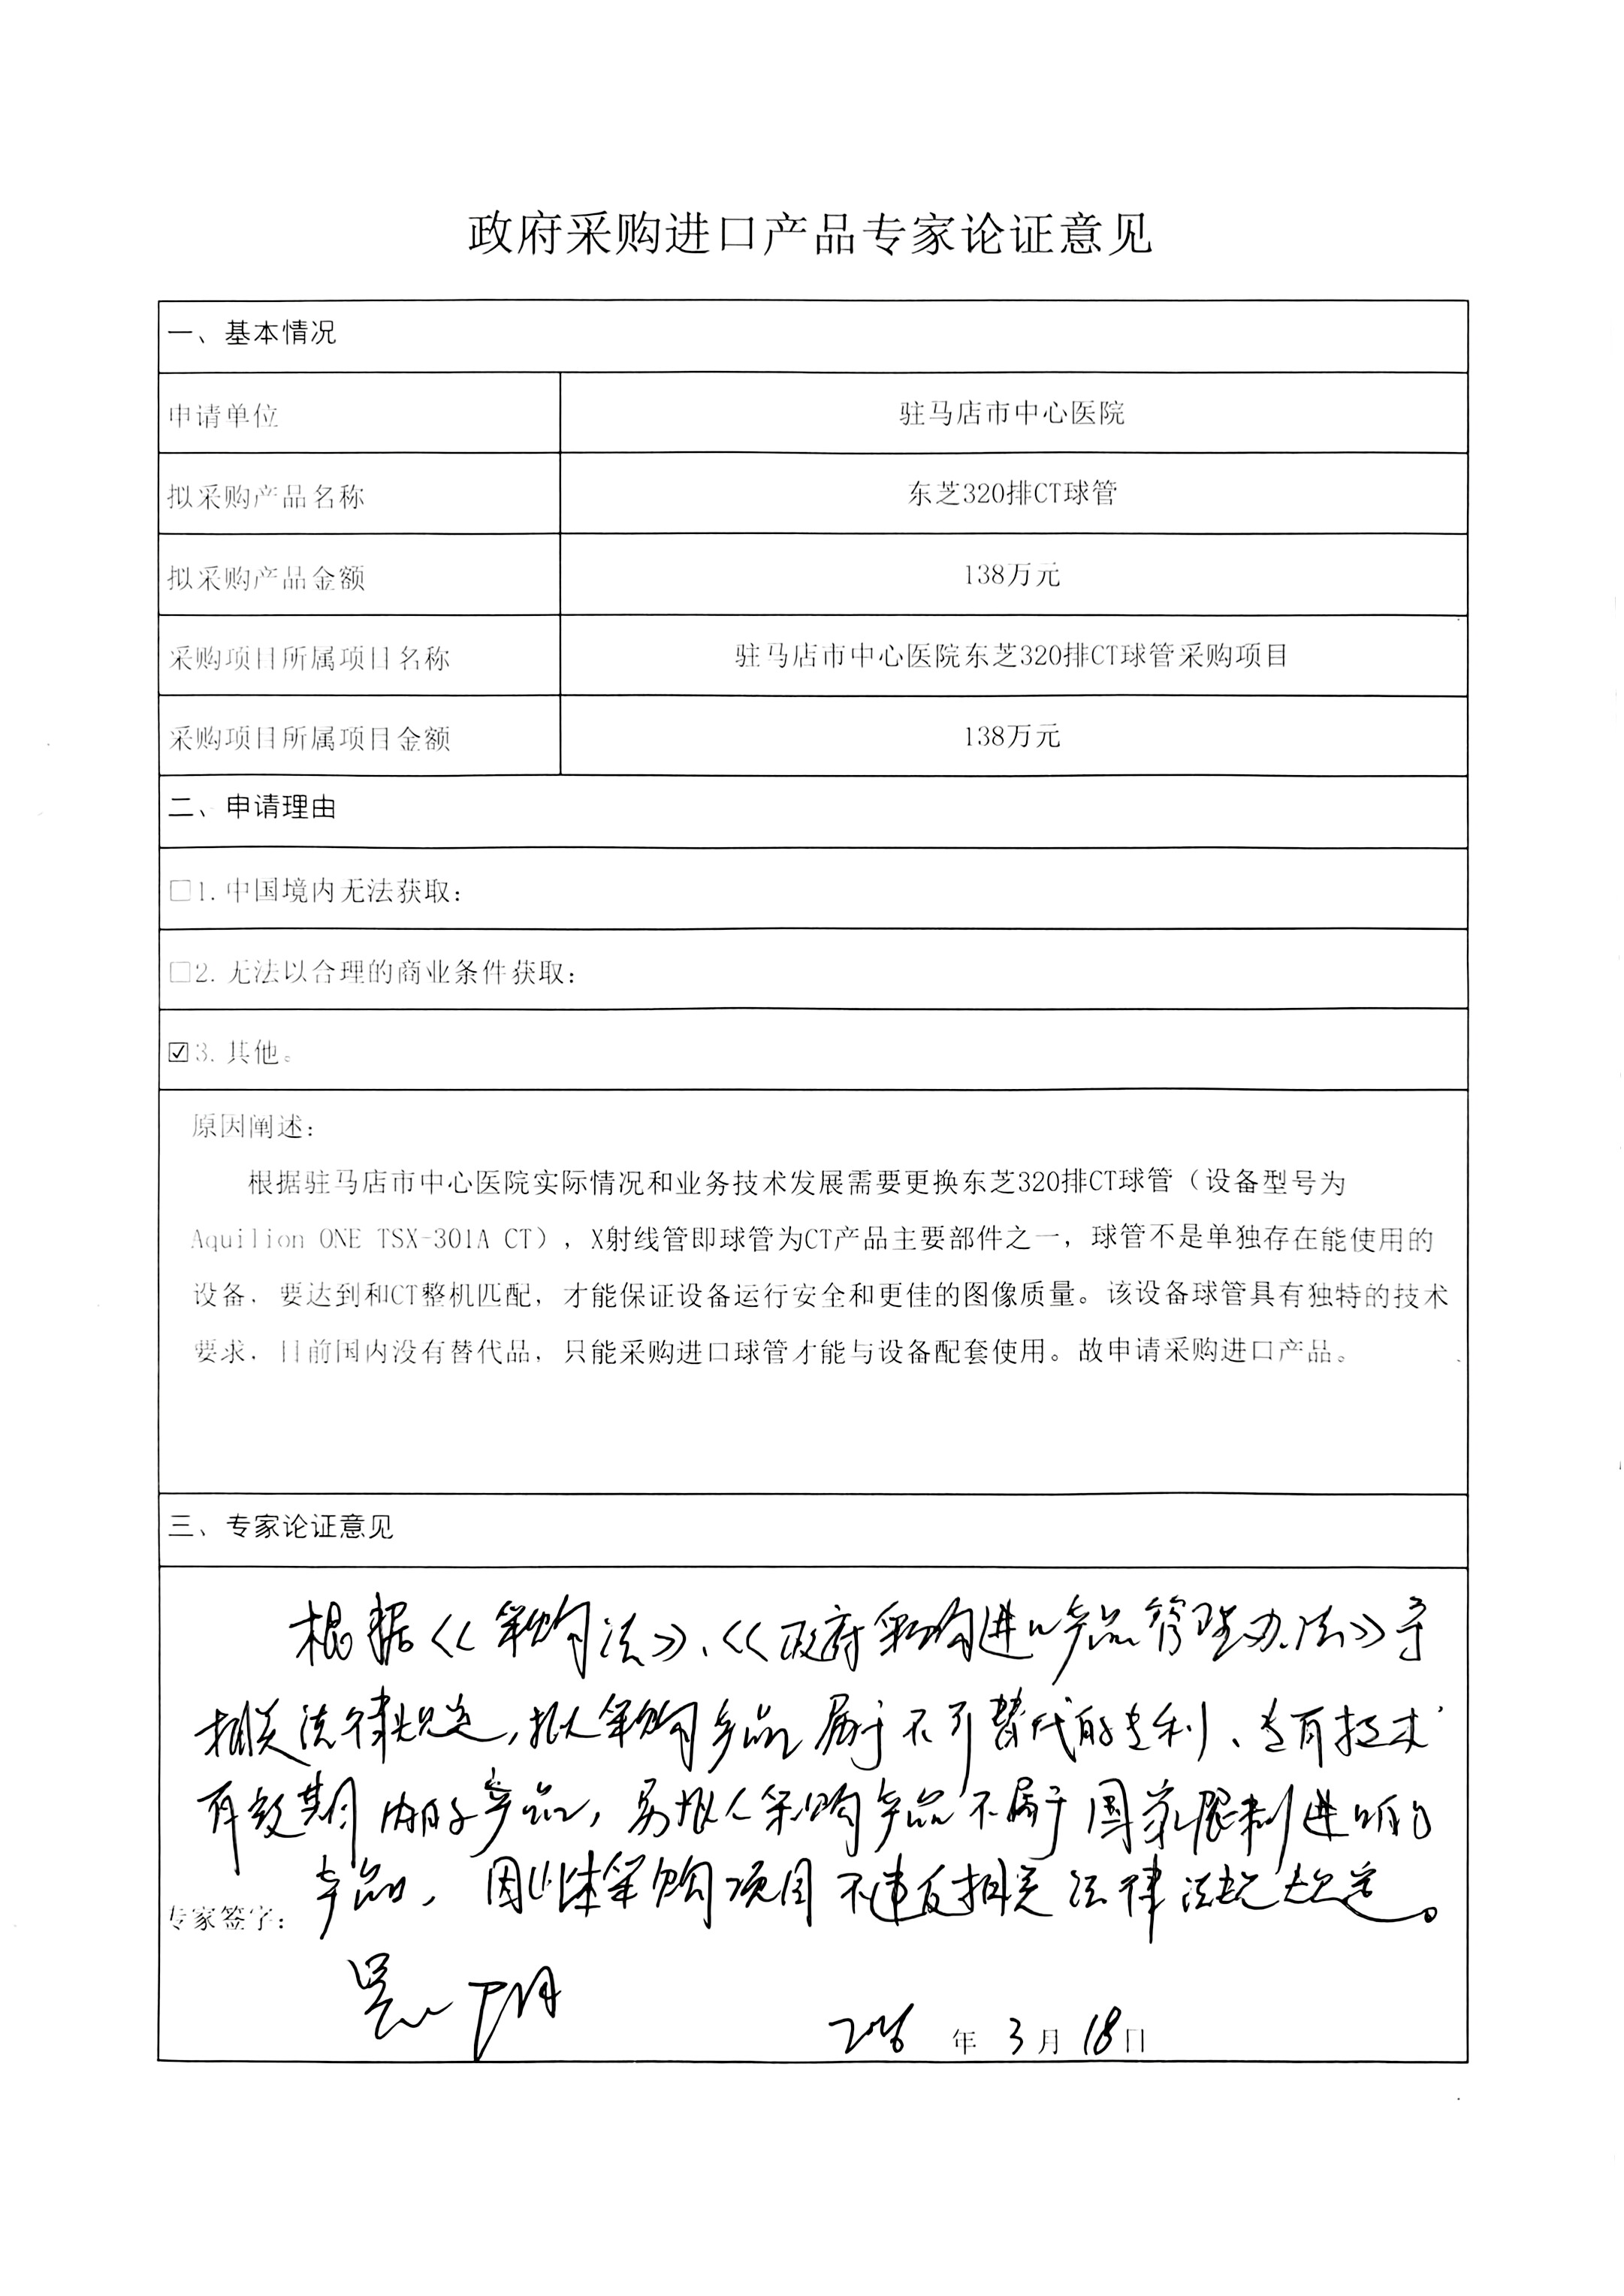 政府采购进口产品专家论证意见
一、基本情况
申请单位 驻马店市中心医院
拟采购产品名称 东芝320排CT球管
拟采购产品金额 138万元
采购项目所属项目名称 驻马店市中心医院东芝320排CT球管采购项目
采购项目所属项目金额 138万元
二、申请理由
☐1. 中国境内无法获取：
☐2. 无法以合理的商业条件获取：
☑3. 其他。
原因阐述：
根据驻马店市中心医院实际情况和业务技术发展需要更换东芝320排CT球管（设备型号为
Aquilion ONE TSX-301A CT），X射线管即球管为CT产品主要部件之一，球管不是单独存在能使用的
设备，要达到和CT整机匹配，才能保证设备运行安全和更佳的图像质量。该设备球管具有独特的技术
要求，目前国内没有替代品，只能采购进口球管才能与设备配套使用。故申请采购进口产品。
三、专家论证意见
根据《采购法》、《政府采购进口产品管理办法》等
相关法律规定，拟采购产品属于不可替代的专利、专有技术
有效期内的产品，另拟采购产品不属于国家限制进口的
产品，因此本采购项目不违反相关法律法规规定。
专家签字：
年3月18日